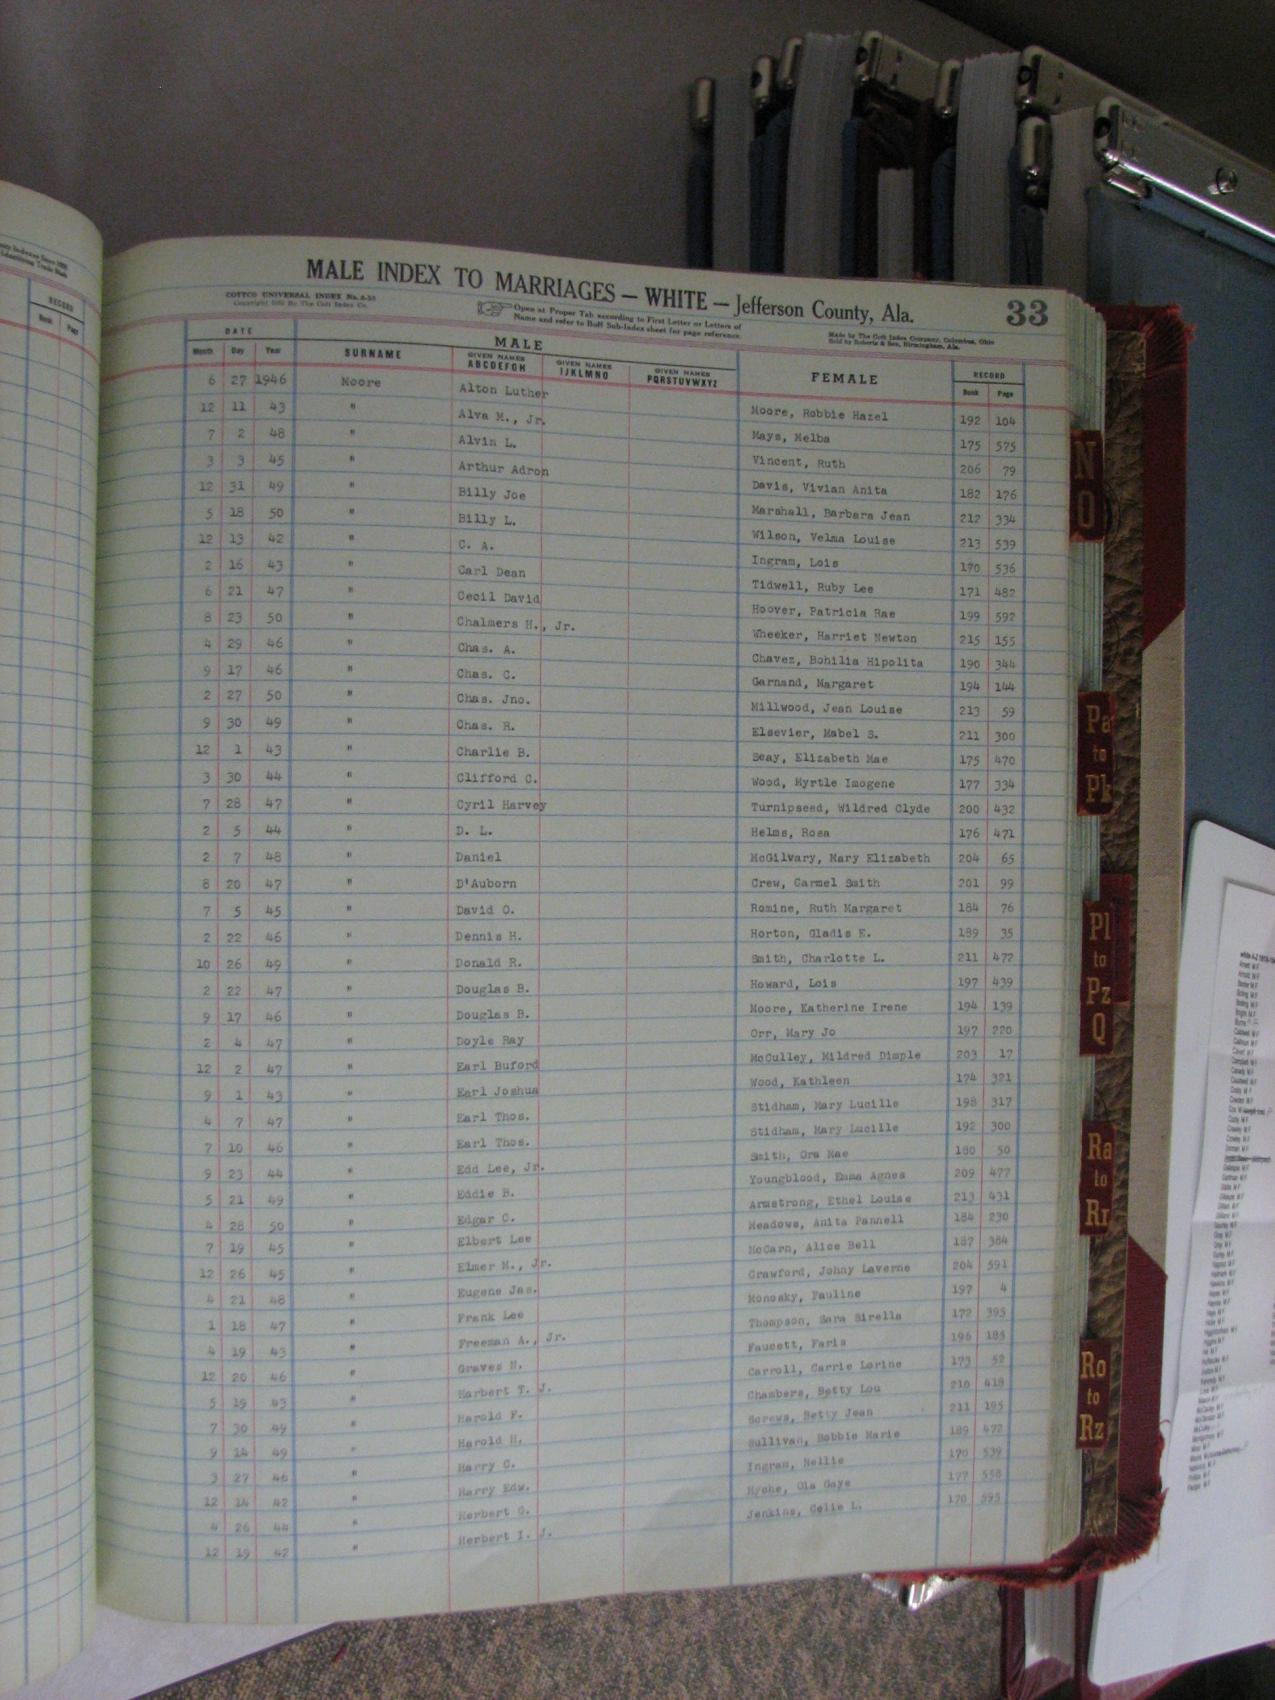 MALE INDEX TO MARRIAGES — WHITE — Jefferson County, Ala. 33
COTTCO UNIVERSAL INDEX No. A-35
Copyright 1935 By The Cott Index Co.
Open at Proper Tab according to First Letter or Letters of
Name and refer to Buff Sub-Index sheet for page reference.
Made by The Cott Index Company, Columbus, Ohio
Sold by Roberts & Son, Birmingham, Ala.
DATE MALE FEMALE RECORD
Month Day Year SURNAME GIVEN NAMES ABCDEFGH GIVEN NAMES IJKLMNO GIVEN NAMES PQRSTUVWXYZ Book Page
6 27 1946 Moore Alton Luther Moore, Robbie Hazel 192 104
12 11 43 " Alva M., Jr. Mays, Melba 175 575
7 2 48 " Alvin L. Vincent, Ruth 206 79
3 3 45 " Arthur Adron Davis, Vivian Anita 182 176
12 31 49 " Billy Joe Marshall, Barbara Jean 212 334
5 18 50 " Billy L. Wilson, Velma Louise 213 539
12 13 42 " C. A. Ingram, Lois 170 536
2 16 43 " Carl Dean Tidwell, Ruby Lee 171 482
6 21 47 " Cecil David Hoover, Patricia Rae 199 592
8 23 50 " Chalmers H., Jr. Wheeker, Harriet Newton 215 155
4 29 46 " Chas. A. Chavez, Bohilia Hipolita 190 344
9 17 46 " Chas. C. Garnand, Margaret 194 144
2 27 50 " Chas. Jno. Millwood, Jean Louise 213 59
9 30 49 " Chas. R. Elsevier, Mabel S. 211 300
12 1 43 " Charlie B. Seay, Elizabeth Mae 175 470
3 30 44 " Clifford C. Wood, Myrtle Imogene 177 334
7 28 47 " Cyril Harvey Turnipseed, Wildred Clyde 200 432
2 5 44 " D. L. Helms, Rosa 176 471
2 7 48 " Daniel McGilvary, Mary Elizabeth 204 65
8 20 47 " D'Auborn Crew, Carmel Smith 201 99
7 5 45 " David O. Romine, Ruth Margaret 184 76
2 22 46 " Dennis H. Horton, Gladis E. 189 35
10 26 49 " Donald R. Smith, Charlotte L. 211 472
2 22 47 " Douglas B. Howard, Lois 197 439
9 17 46 " Douglas B. Moore, Katherine Irene 194 139
2 4 47 " Doyle Ray Orr, Mary Jo 197 220
12 2 47 " Earl Buford McCulley, Mildred Dimple 203 17
9 1 43 " Earl Joshua Wood, Kathleen 174 321
4 7 47 " Earl Thos. Stidham, Mary Lucille 198 317
7 10 46 " Earl Thos. Stidham, Mary Lucille 192 300
9 23 44 " Edd Lee, Jr. Smith, Ora Mae 180 50
5 21 49 " Eddie B. Youngblood, Emma Agnes 209 477
4 28 50 " Edgar C. Armstrong, Ethel Louise 213 431
7 19 45 " Elbert Lee Meadows, Anita Pannell 184 230
12 26 45 " Elmer M., Jr. McCarn, Alice Bell 187 384
4 21 48 " Eugene Jas. Crawford, Johny Laverne 204 591
1 18 47 " Frank Lee Monosky, Pauline 197 4
4 19 43 " Freeman A., Jr. Thompson, Sara Sirella 172 395
12 20 46 " Graves N. Faucett, Faris 196 185
5 19 43 " Harbert T. J. Carroll, Carrie Lorine 173 52
7 30 49 " Harold F. Chambers, Betty Lou 210 418
9 14 49 " Harold H. Screws, Betty Jean 211 195
3 27 46 " Harry C. Sullivan, Bobbie Marie 189 472
12 14 42 " Harry Edw. Ingram, Nellie 170 539
4 26 44 " Herbert G. Hyche, Ola Gaye 177 558
12 19 42 " Herbert I. J. Jenkins, Celie L. 170 595
N
O
Pa
to
Pk
Pl
to
Pz
Q
Ra
to
Rr
Ro
to
Rz
RECORD
Book Page